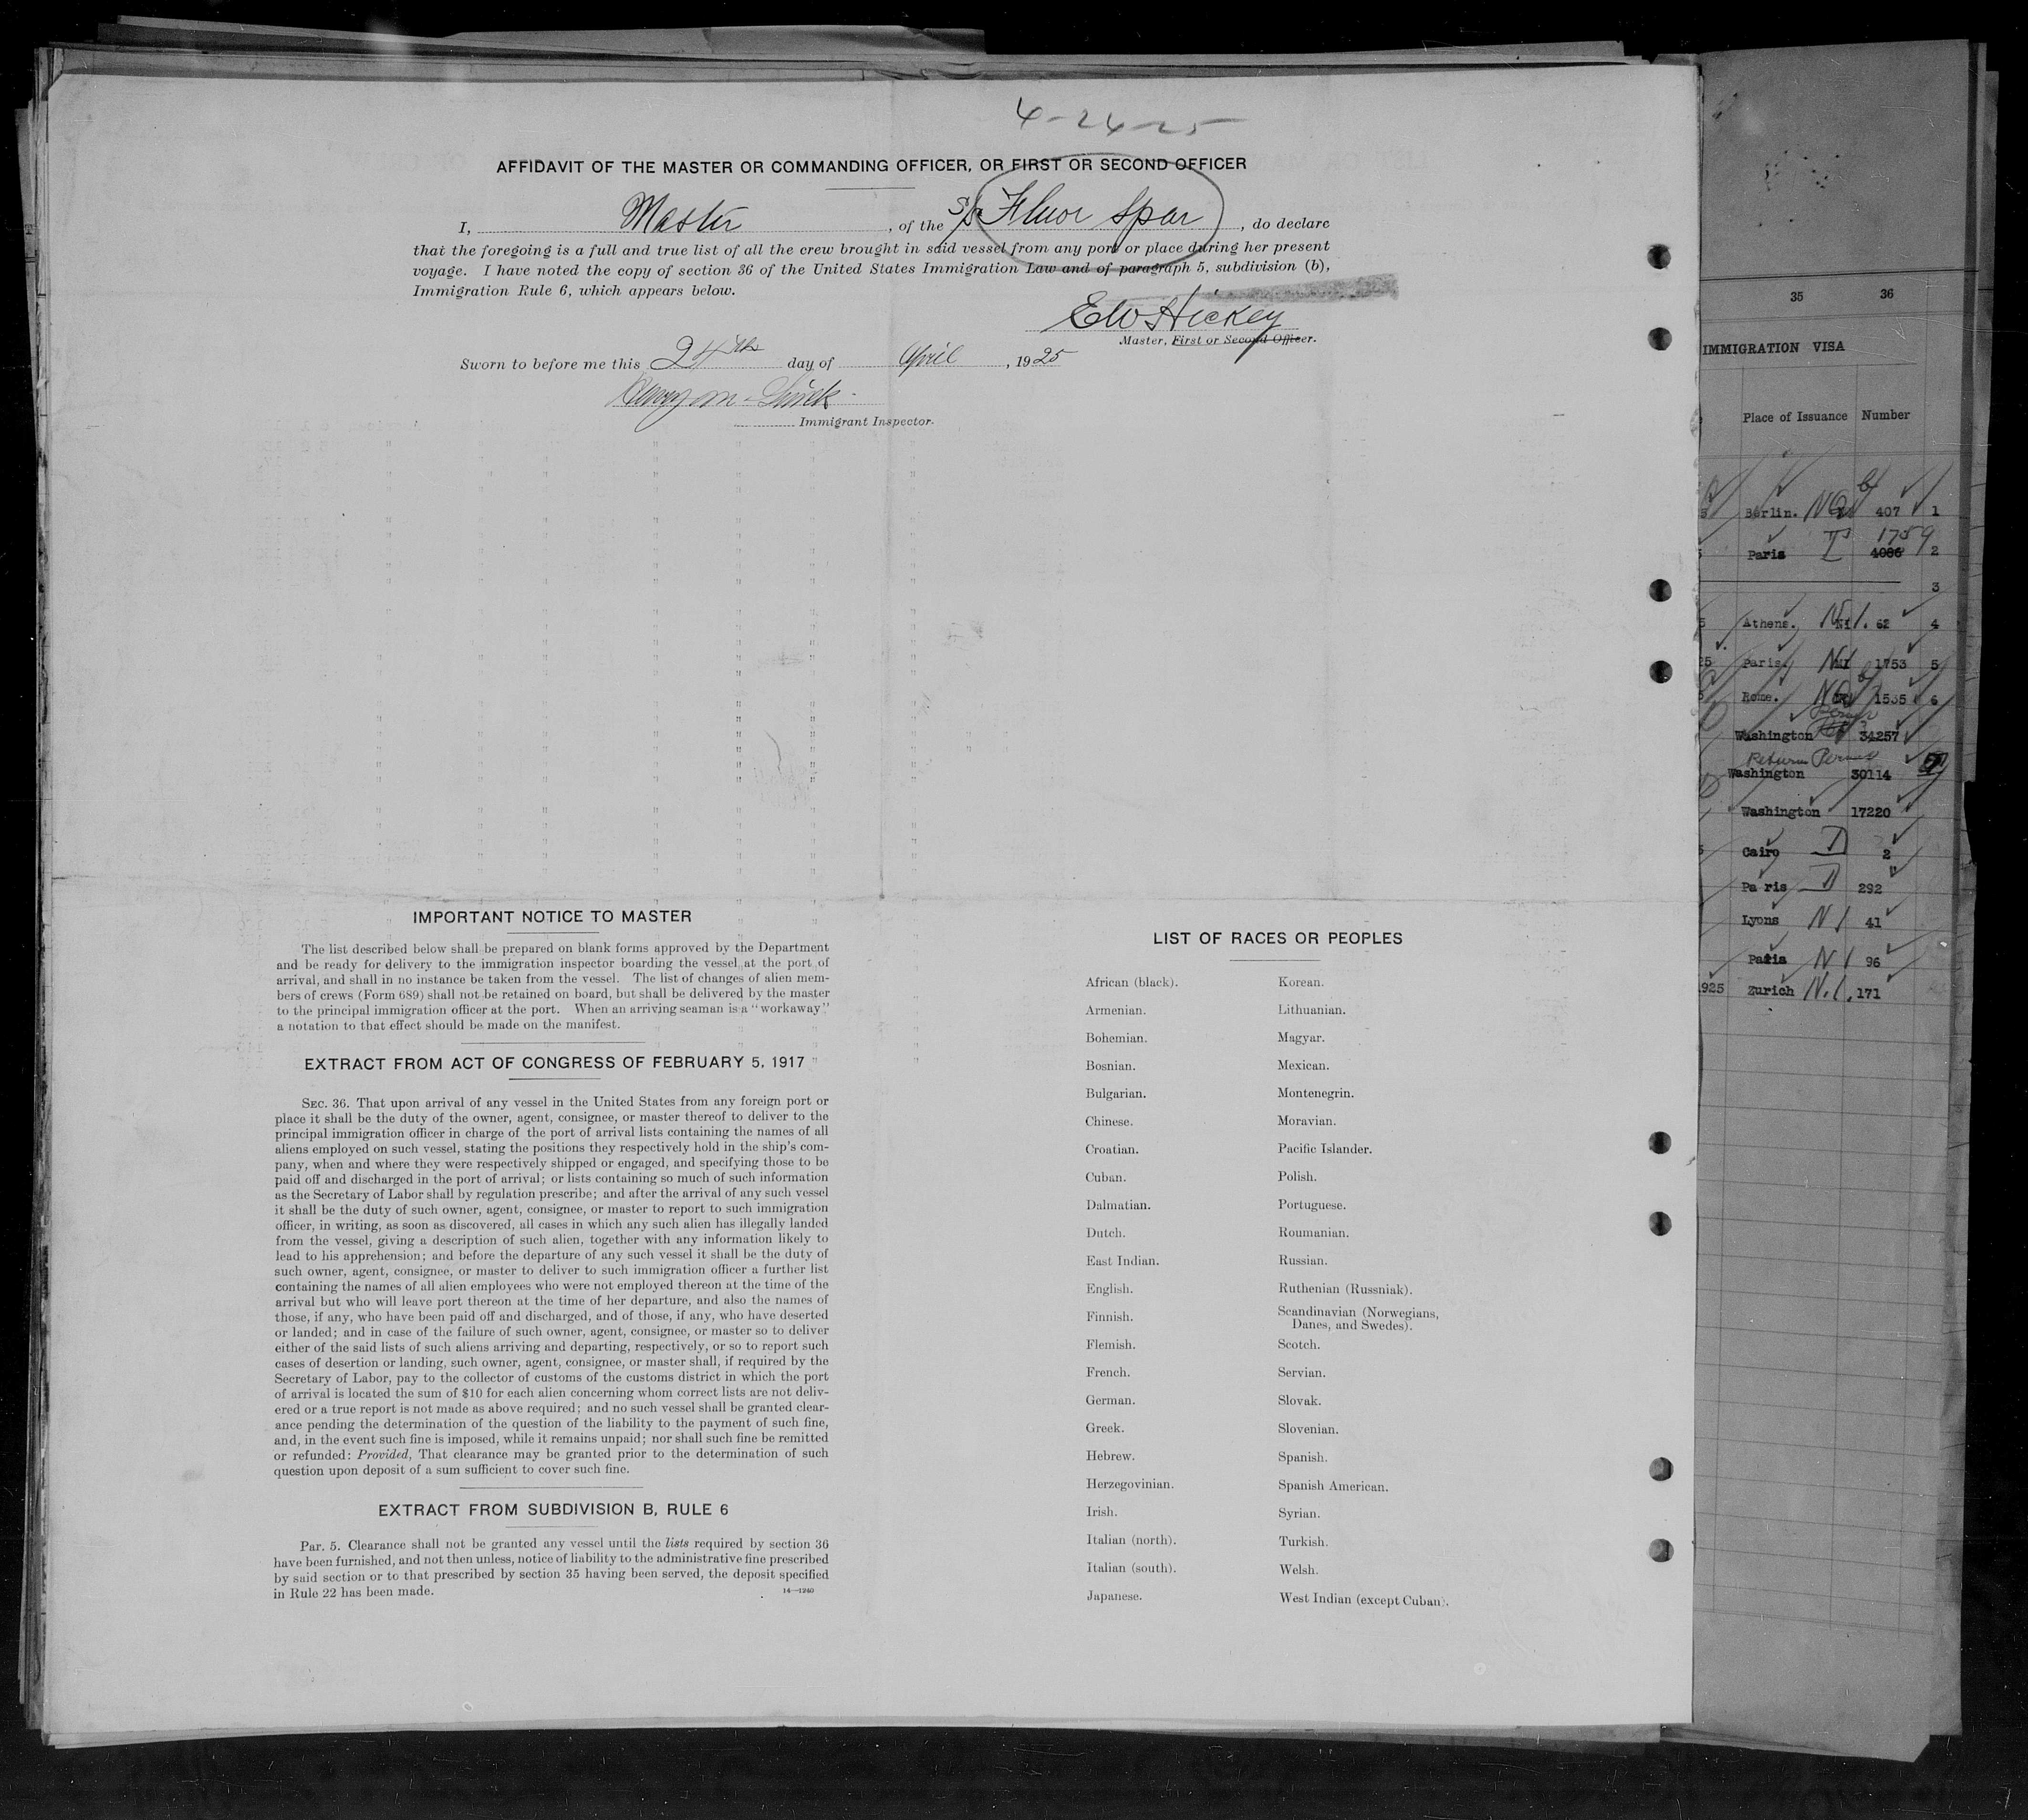 4-24-25
AFFIDAVIT OF THE MASTER OR COMMANDING OFFICER, OR FIRST OR SECOND OFFICER
I, Master, of the S/S Fluor Spar, do declare
that the foregoing is a full and true list of all the crew brought in said vessel from any port or place during her present
voyage. I have noted the copy of section 36 of the United States Immigration Law and of paragraph 5, subdivision (b),
Immigration Rule 6, which appears below.
EW Hickey
Master, First or Second Officer.
Sworn to before me this 24th day of April, 1925
Immigrant Inspector.
IMPORTANT NOTICE TO MASTER
The list described below shall be prepared on blank forms approved by the Department
and be ready for delivery to the immigration inspector boarding the vessel at the port of
arrival, and shall in no instance be taken from the vessel. The list of changes of alien mem-
bers of crews (Form 689) shall not be retained on board, but shall be delivered by the master
to the principal immigration officer at the port. When an arriving seaman is a "workaway"
a notation to that effect should be made on the manifest.
EXTRACT FROM ACT OF CONGRESS OF FEBRUARY 5, 1917
SEC. 36. That upon arrival of any vessel in the United States from any foreign port or
place it shall be the duty of the owner, agent, consignee, or master thereof to deliver to the
principal immigration officer in charge of the port of arrival lists containing the names of all
aliens employed on such vessel, stating the positions they respectively hold in the ship's com-
pany, when and where they were respectively shipped or engaged, and specifying those to be
paid off and discharged in the port of arrival; or lists containing so much of such information
as the Secretary of Labor shall by regulation prescribe; and after the arrival of any such vessel
it shall be the duty of such owner, agent, consignee, or master to report to such immigration
officer, in writing, as soon as discovered, all cases in which any such alien has illegally landed
from the vessel, giving a description of such alien, together with any information likely to
lead to his apprehension; and before the departure of any such vessel it shall be the duty of
such owner, agent, consignee, or master to deliver to such immigration officer a further list
containing the names of all alien employees who were not employed thereon at the time of the
arrival but who will leave port thereon at the time of her departure, and also the names of
those, if any, who have been paid off and discharged, and of those, if any, who have deserted
or landed; and in case of the failure of such owner, agent, consignee, or master so to deliver
either of the said lists of such aliens arriving and departing, respectively, or so to report such
cases of desertion or landing, such owner, agent, consignee, or master shall, if required by the
Secretary of Labor, pay to the collector of customs of the customs district in which the port
of arrival is located the sum of $10 for each alien concerning whom correct lists are not deliv-
ered or a true report is not made as above required; and no such vessel shall be granted clear-
ance pending the determination of the question of the liability to the payment of such fine,
and, in the event such fine is imposed, while it remains unpaid; nor shall such fine be remitted
or refunded: Provided, That clearance may be granted prior to the determination of such
question upon deposit of a sum sufficient to cover such fine.
EXTRACT FROM SUBDIVISION B, RULE 6
Par. 5. Clearance shall not be granted any vessel until the lists required by section 36
have been furnished, and not then unless, notice of liability to the administrative fine prescribed
by said section or to that prescribed by section 35 having been served, the deposit specified
in Rule 22 has been made.
14—1240
LIST OF RACES OR PEOPLES
African (black). Korean.
Armenian. Lithuanian.
Bohemian. Magyar.
Bosnian. Mexican.
Bulgarian. Montenegrin.
Chinese. Moravian.
Croatian. Pacific Islander.
Cuban. Polish.
Dalmatian. Portuguese.
Dutch. Roumanian.
East Indian. Russian.
English. Ruthenian (Russniak).
Finnish. Scandinavian (Norwegians,
Danes, and Swedes).
Flemish. Scotch.
French. Servian.
German. Slovak.
Greek. Slovenian.
Hebrew. Spanish.
Herzegovinian. Spanish American.
Irish. Syrian.
Italian (north). Turkish.
Italian (south). Welsh.
Japanese. West Indian (except Cuban).
35 36
IMMIGRATION VISA
Place of Issuance Number
Berlin. 407 1
1759
Paris 4086 2
3
Athens. 62 4
Paris. 1753 5
Rome. 1535 6
Washington 34257
Return Permit
Washington 30114
Washington 17220
Cairo D 2
Paris D 292
Lyons NI 41
Paris NI 96
925 Zurich N.I. 171